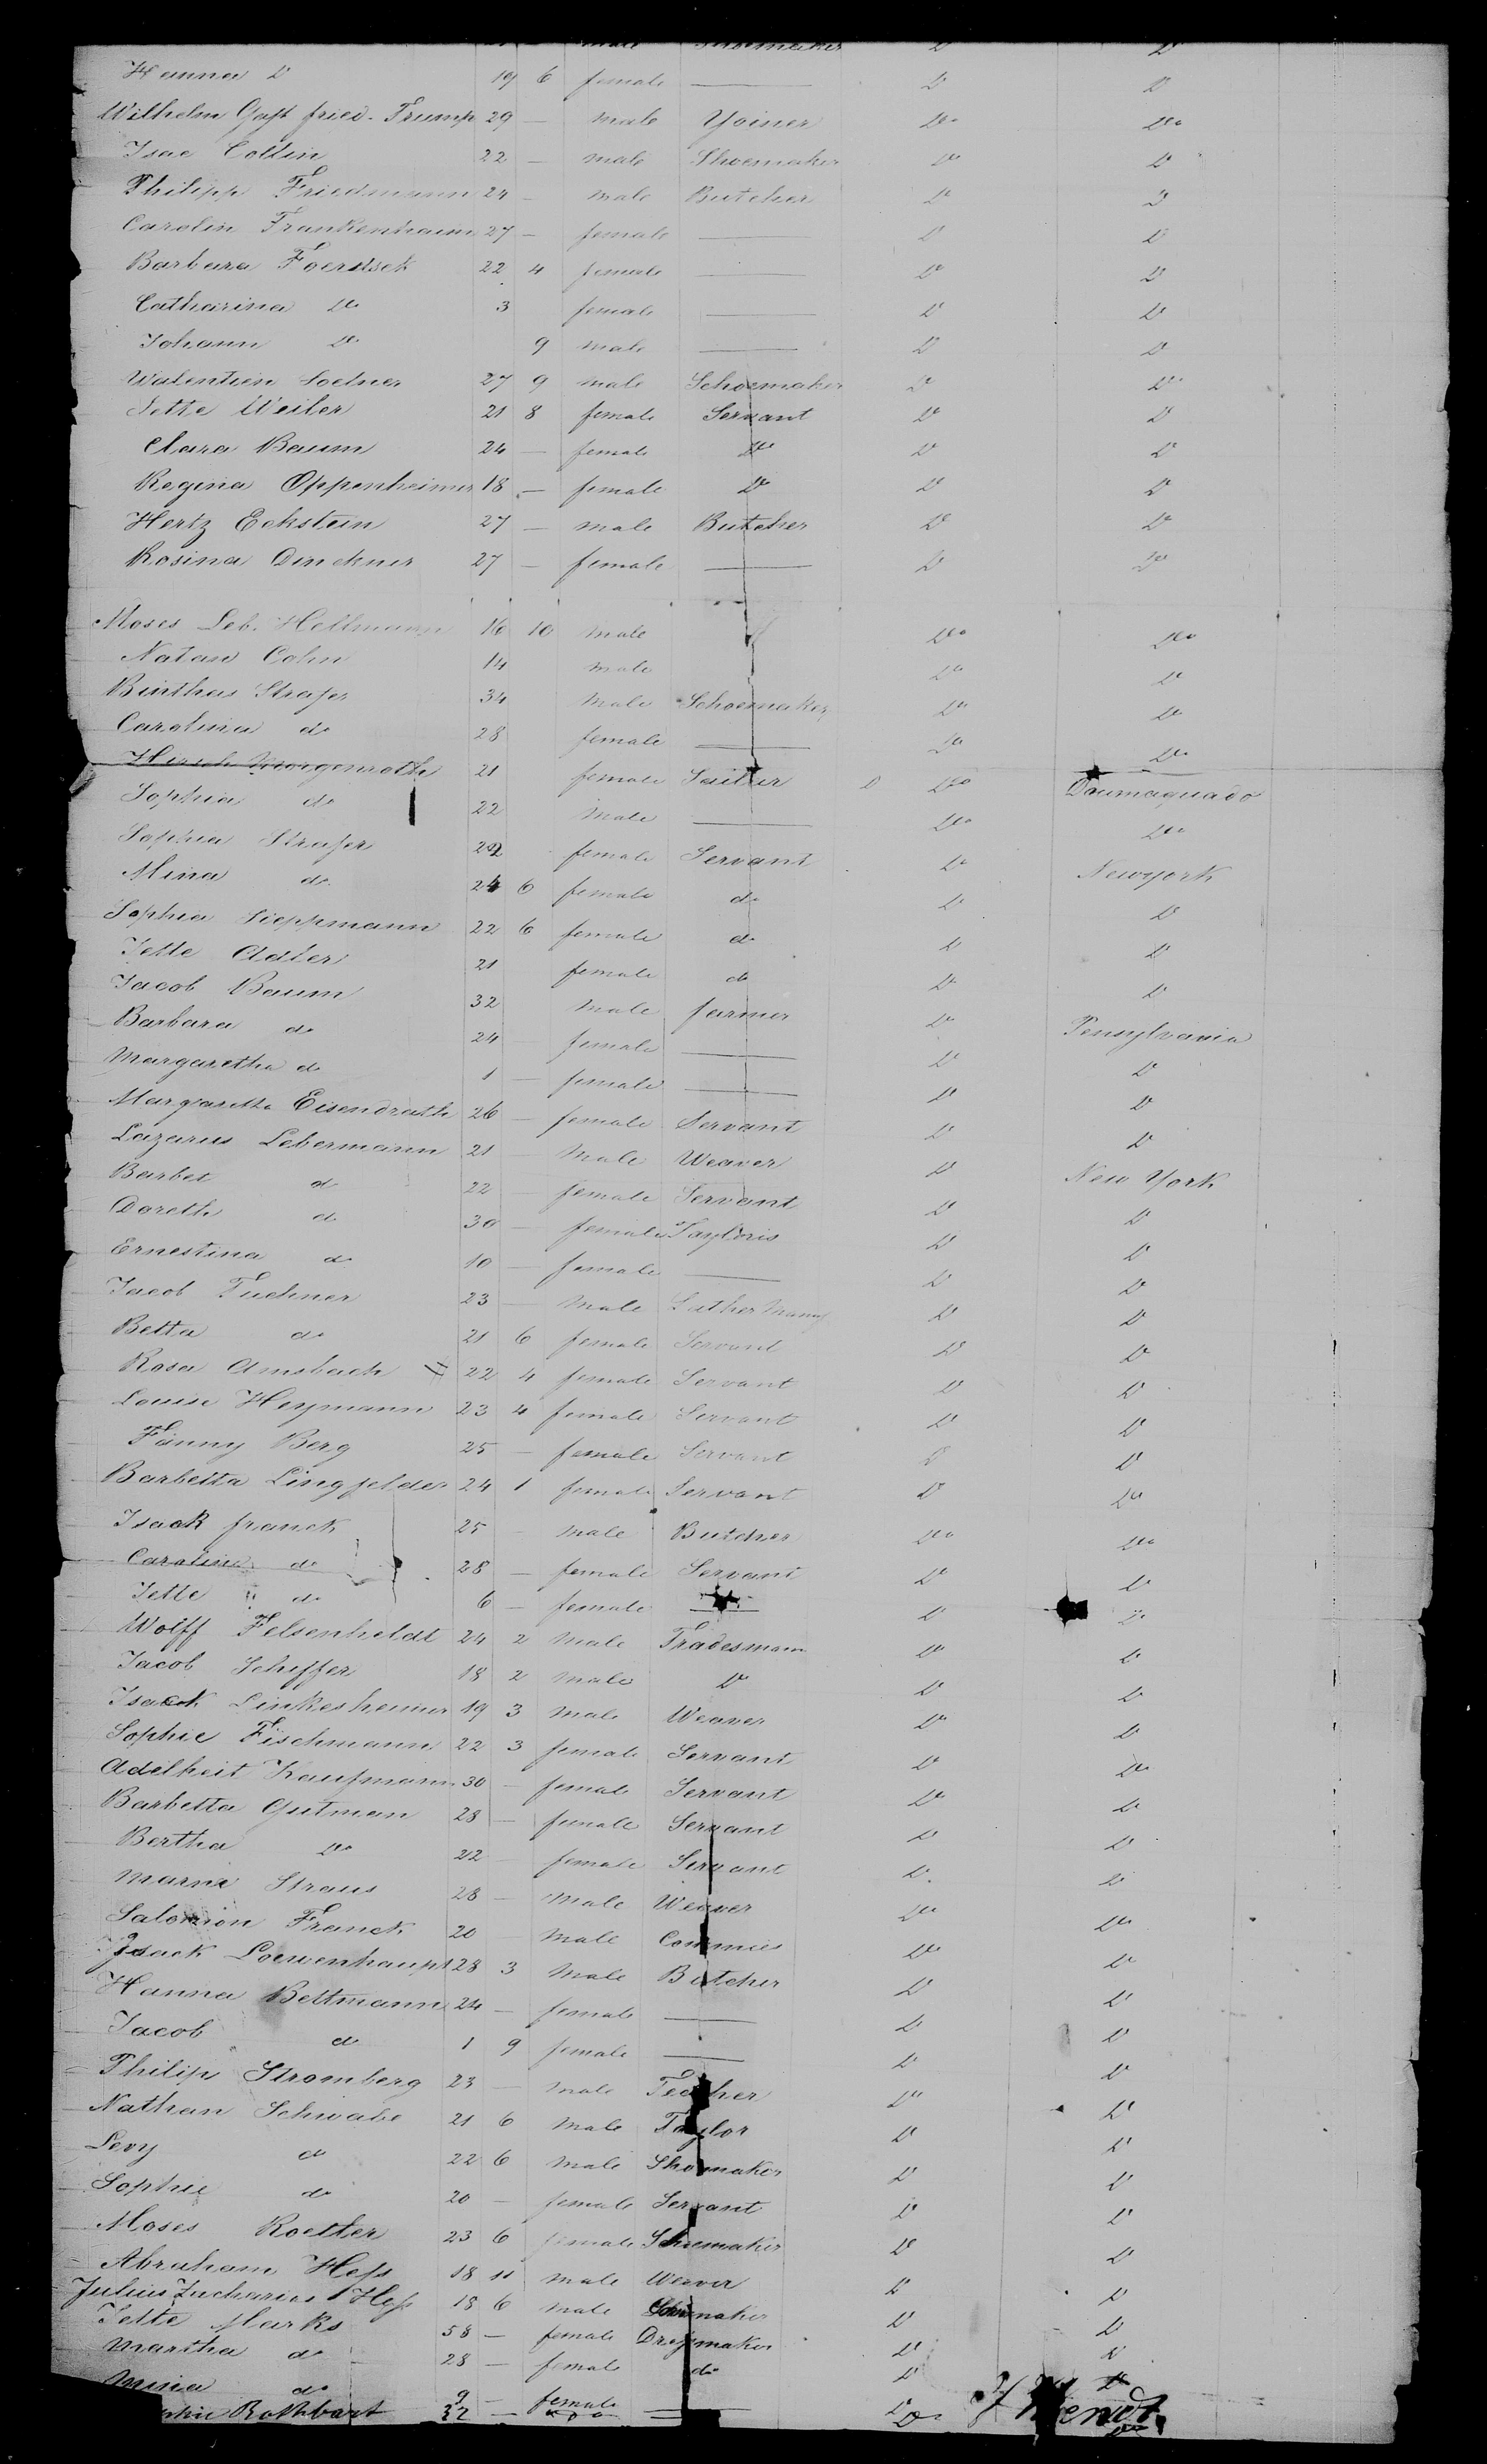 male Shoemaker Do Do
Hanna Do 19 6 female — Do Do
Wilhelm Gust fried. Trump 29 — male Yoiner Do Do
Isac Collin 22 — male Shoemaker Do Do
Philipp Friedmann 24 — male Butcher Do Do
Carolin Frankenhaim 27 — female — Do Do
Barbara 22 4 female — Do Do
Catharina Do 3 female — Do Do
Johann Do 9 male — Do Do
Walentien Soelner 27 9 male Schoemaker Do Do
Jette Weiler 21 8 female Servant Do Do
Clara Baum 24 — female Do Do Do
Regina Oppenheimer 18 — female Do Do Do
Hertz Eckstein 27 — male Butcher Do Do
Rosina 27 — female — Do Do
Moses Leb. Hellmann 16 10 male Do Do
Natan Cohn 14 male Do Do
Strafs 34 male Schoemaker Do Do
Carolina do 28 female — Do Do
Hirsch Morgenroth 21 female Do
Sophia do 22 male — Do Do
Sophia 22 female Servant Do Newyork
Mina do 24 6 female do Do Do
Sophia 22 6 female do Do Do
Jette Adler 21 female do Do Do
Jacob Baum 32 male farmer Do Pensylvania
Barbara do 24 female — Do Do
Margaretha do 1 — female — Do Do
Margaretha Eisendrath 26 — female Servant Do Do
Lazarus Lebermann 21 — male Weaver Do New York
Barbet do 22 — female Servant Do Do
Doreth do 30 — female Tayloris Do Do
Ernestina do 10 — female — Do Do
Jacob Fuchner 23 — male Do Do
Betta do 21 6 female Servant Do Do
Rosa Amsbach 22 4 female Servant Do Do
Louise Heymann 23 4 female Servant Do Do
Fanny Berg 25 — female Servant Do Do
Barbetta Lingfelder 24 1 female Servant Do Do
Isack franck 25 — male Butcher Do Do
Carolina do 28 — female Servant Do Do
Jette do 6 — female — Do Do
Wolff Felsenheldt 24 2 male Tradesmam Do Do
Jacob Schiffer 18 2 male Do Do Do
Isack Linkesheimer 19 3 male Weaver Do Do
Sophie Fischmann 22 3 female Servant Do Do
Adelheit Kaufmann 30 — female Servant Do Do
Barbetta Gutman 28 — female Servant Do Do
Bertha Do 22 — female Servant Do Do
Straus 28 — male Weaver Do Do
Salomon Franck 20 — male Commies Do Do
Isack Loewenhaupt 28 3 male Butcher Do Do
Hanna Bettmann 24 — female — Do Do
Jacob do 1 9 female — Do Do
Philip Stromberg 23 — male Teacher Do Do
Nathan Schwabe 21 6 male Taylor Do Do
Levy do 22 6 male Shomaker Do Do
Sophie do 20 — female Servant Do Do
Moses Roether 23 6 female Schoemaker Do Do
Abraham Hess 18 11 male Weaver Do Do
Julius Zacharias Hess 18 6 male Do Do
Jette Marks 58 — female Dressmaker Do Do
Martha do 28 — female do Do Do
Mina do 9 — female — Do Do
Rothbart 32 — Do — Do Do